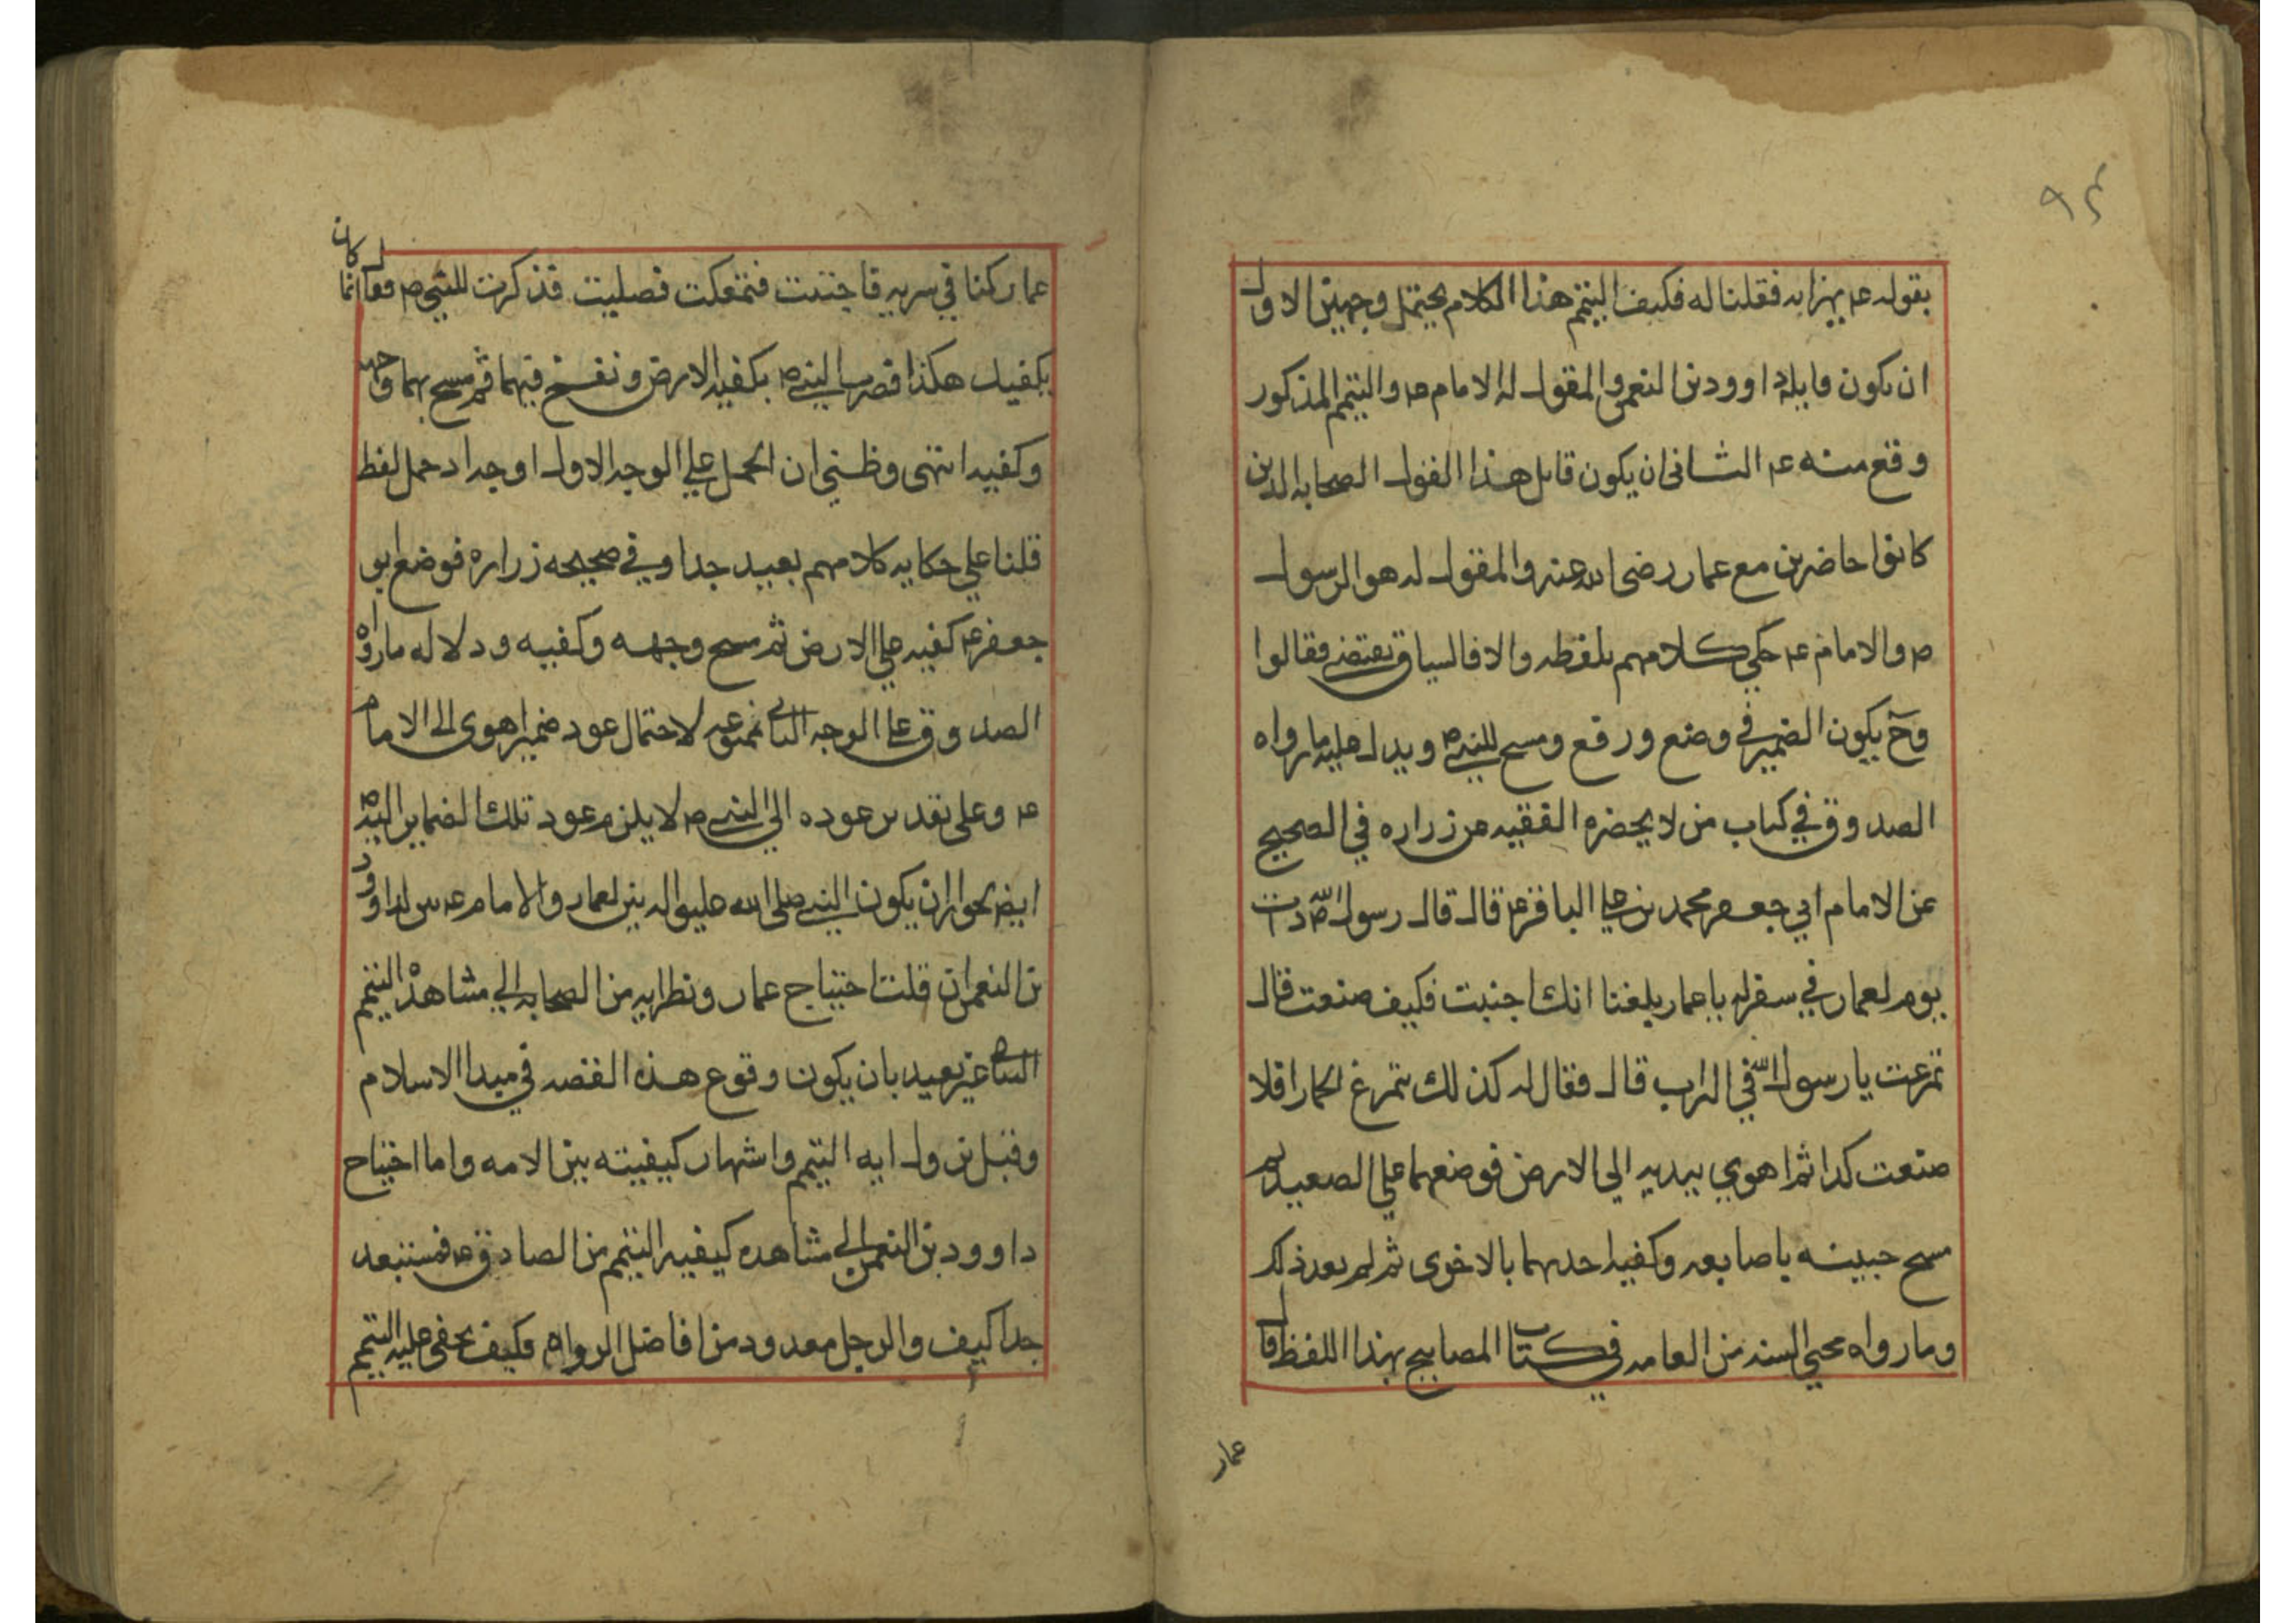 ٩٤
بقوله ع يهزا به فقلنا له فكيف التيمم هذا الكلام يحتمل وجهين الاول
ان يكون قايله داوود بن النعمن والمقول له الامام ع والتيمم المذكور
وقع منه ع الثانى ان يكون قايل هذا القول الصحابه الذين
كانوا حاضرين مع عمار رضى الله عنه والمقول له هو الرسول
ص والامام ع حكي كلامهم بلفظه والا فالسياق يقتضي فقالوا
وح يكون الضمير في وضع ورفع ومسح للنبي ص ويدل عليه ما رواه
الصدوق في كتاب من لا يحضره الفقيه عن زراره في الصحيح
عن الامام ابي جعفر محمد بن علي الباقر ع قال قال رسول الله ص ذات
يوم لعمار في سفر له يا عمار بلغنا انك اجنبت فكيف صنعت قال
تمرغت يا رسول الله في التراب قال فقال له كذلك يتمرغ الحمار افلا
صنعت كذا ثم اهوي بيديه الي الارض فوضعهما علي الصعيد ثم
مسح جبينه باصابعه وكفيه احدهما بالاخرى ثم لم يعد ذلك
وما رواه محيي السنه من العامه في كتاب المصابيح بهذا اللفظ قال
عمار
عمار كنا في سريه فاجنبت فتمعكت فصليت فذكرت للنبي ص فقال انما كان
يكفيك هكذا فضرب النبي ص بكفيه الارض ونفخ فيهما ثم مسح بهما وجهه
وكفيه انتهى وظني ان الحمل علي الوجه الاول اوجه اذ حمل لفظ
قلنا علي حكايه كلامهم بعيد جدا وفي صحيحه زراره فوضع ابو
جعفر ع كفيه علي الارض ثم مسح وجهه وكفيه ودلاله ما رواه
الصدوق علي الوجه الثاني ممنوعه لاحتمال عود ضمير اهوى الى الامام
ع وعلى تقدير عوده الي النبي ص لا يلزم عود تلك الضماير اليه
ايضا لجواز ان يكون النبي صلى الله عليه واله بين لعمار والامام ع بين لداوود
بن النعمن ان قلت احتياج عمار ونظرايه من الصحابه الي مشاهدة التيمم
البياني غير بعيد بان يكون وقوع هذه القصه في مبدا الاسلام
وقبل نزول ايه التيمم واشتهار كيفيته بين الامه واما احتياج
داوود بن النعمن الي مشاهده كيفيه التيمم من الصادق ع فمستبعد
جدا كيف والرجل معدود من افاضل الرواه فكيف يخفى عليه التيمم